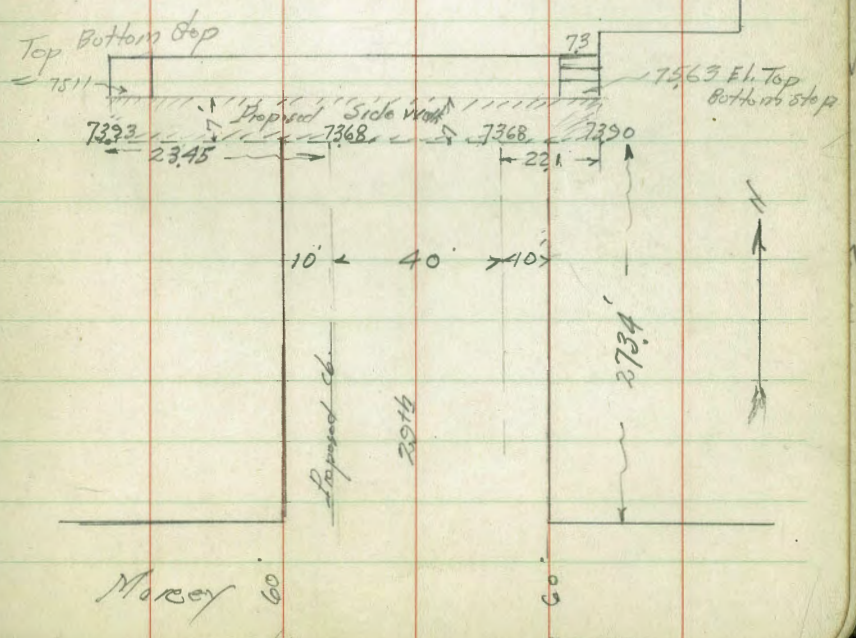 Top Bottom Stop
= 7511
73
7563 El. Top
Bottom Stop
7' Proposed Side walk 7'
7393 7368 7368 7390
23.45 22.1
10' 40' 10'
273.4'
N
Proposed Cb.
29th
60' 60'